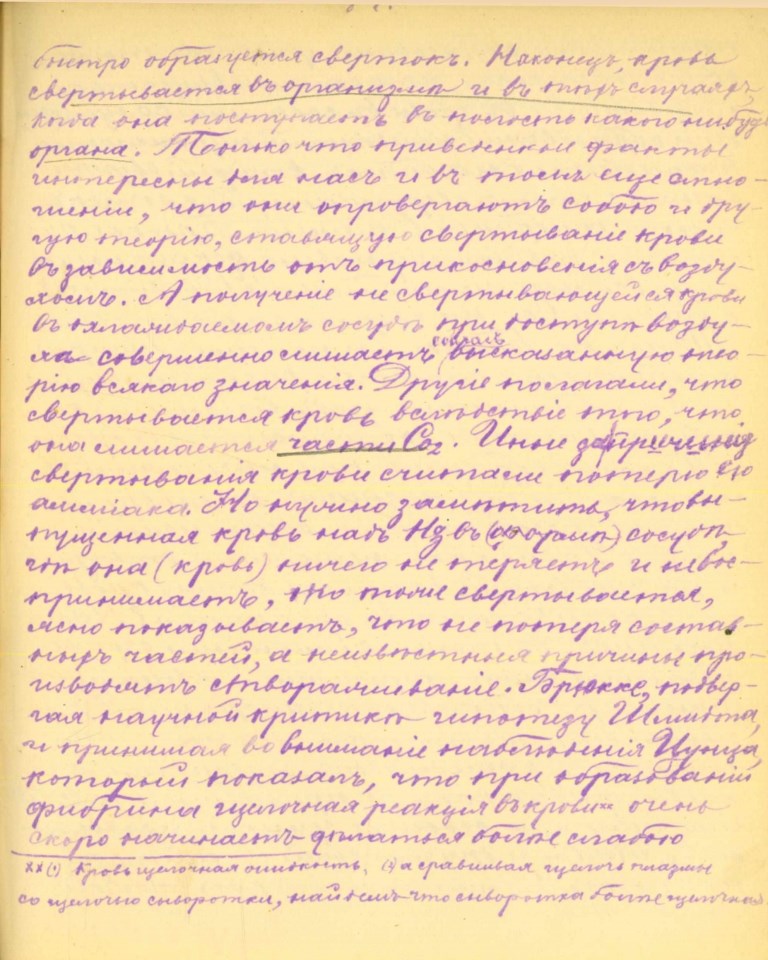 быстро образуется свертокъ. Наконецъ, кровь
свертывается въ организмѣ и въ тѣхъ случаяхъ,
когда она поступаетъ въ полость какого нибудь
органа. Только что привѣденные факты
интересны для насъ и въ томъ еще отно-
шеніи, что они опровергаютъ собою и дру-
гую теорію, ставящую свертываніе крови
въ зависимость отъ прикосновенія съ возду-
хомъ. А полученіе не свертывающейся крови
въ охлаждаемомъ сосудѣ при доступѣ возду-
ха совершенно лишаетъ высказанную тео-
рію всякаго значенія. Другіе полагали, что
свертывается кровь вслѣдствіе того, что
она лишается части Co2. Иные за причину
свертыванія крови считали потерю ею
амміака. Но нужно замѣтить, что вы-
пущенная кровь надъ Hg въ сосудѣ,
гдѣ она (кровь) ничего не теряетъ и не вос-
принимаетъ, тоже свертывается,
ясно показываетъ, что не потеря состав-
ныхъ частей, а неизвѣстныя причины про-
изводятъ створаживаніе. Брюкке, подвер-
гая научной критикѣ гипотезу Шмидта,
и принимая во вниманіе наблюденія Цунца,
который показалъ, что при образованіи
фибрина щелочная реакція въ крови xx очень
скоро начинаетъ дѣлаться болѣе слабою
xx (1) Кровь щелочная жидкость, (2) а сравнивая щелочь плазмы
со щелочью сыворотки, найдемъ что сыворотка болѣе щелочна.